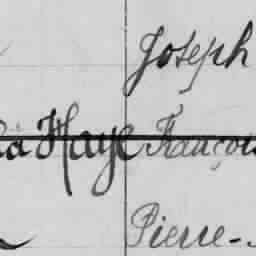 Joseph
la Haye François
Pierre-